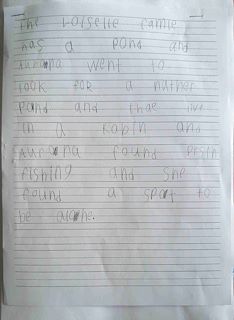 The Loiselle famlie
has a pond and
Aurana went to
look for a nuther
pond and thae live
in a Kobin and
Aurana found
fishing and she
found a spot to
be alone.